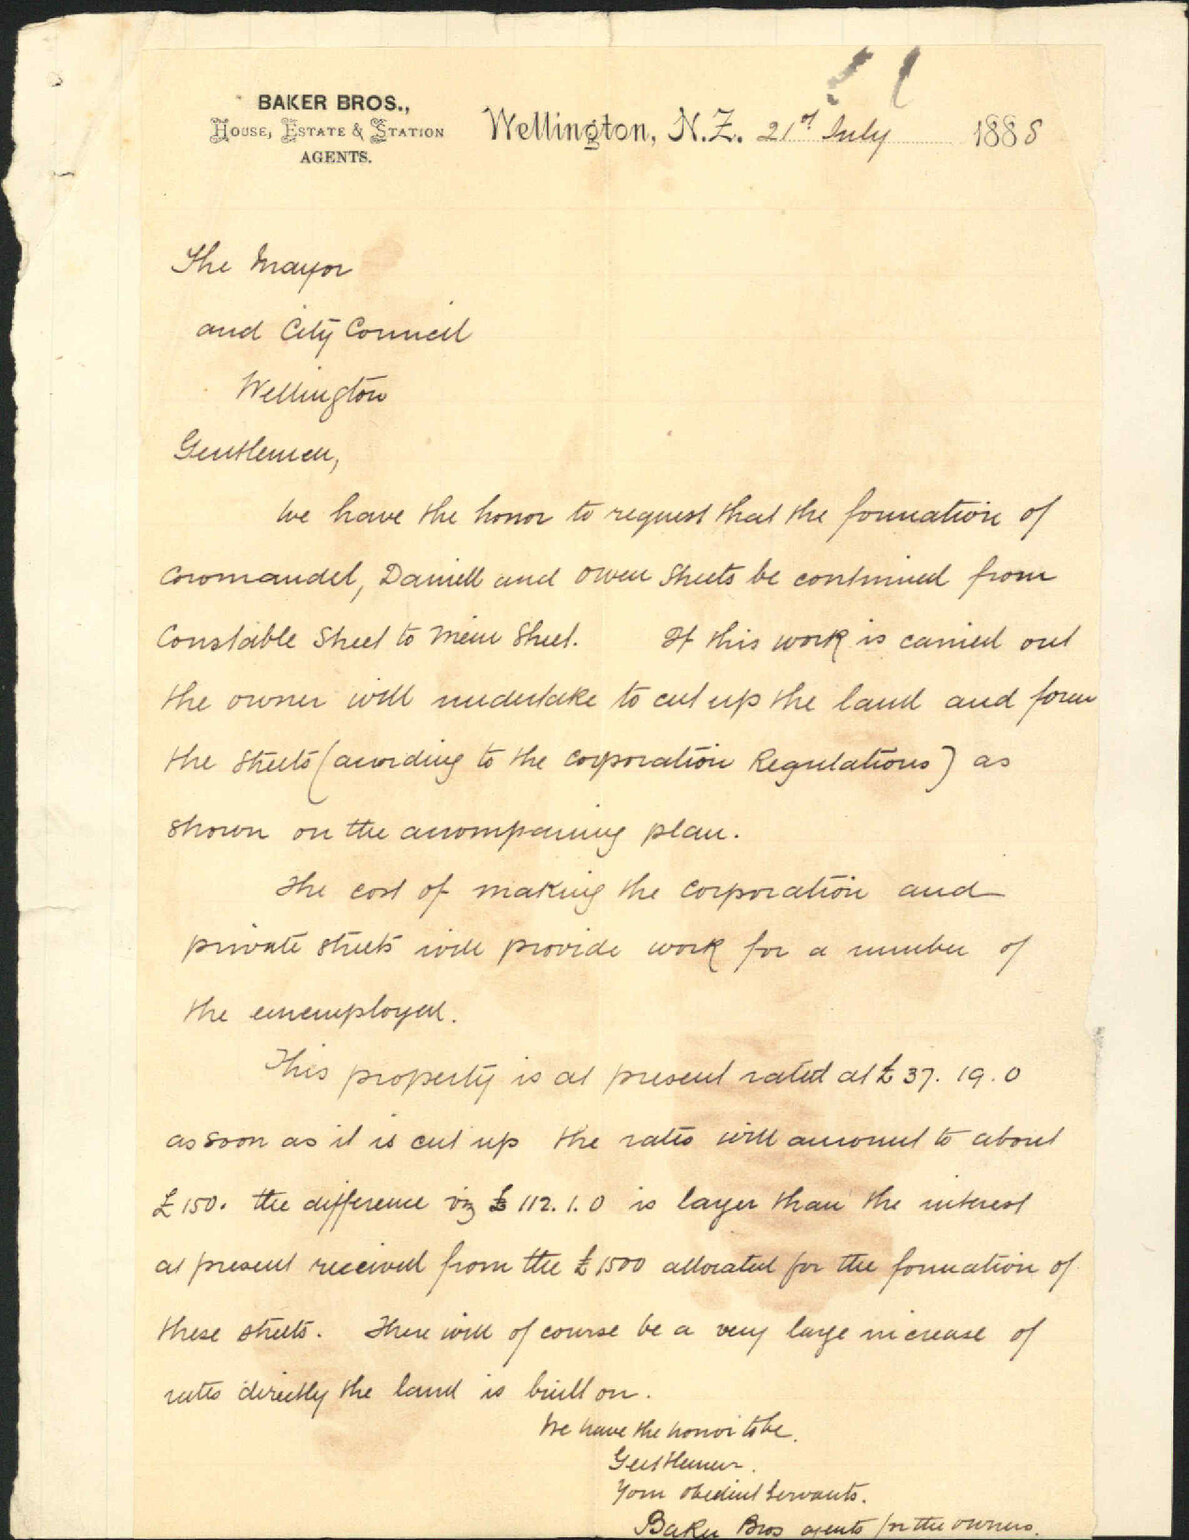 BAKER BROS.,
HOUSE, ESTATE & STATION
AGENTS.
Wellington, N.Z. 21st July 1888
The Mayor
and City Council
Wellington
Gentlemen,
We have the honor to request that the formation of
Coromandel, Daniell and Owen Streets be continued from
Constable Street to Mein Street. If this work is carried out
the owner will undertake to cut up the land and form
the streets (according to the Corporation Regulations) as
shown on the accompaning plan.
The cost of making the Corporation and
private streets will provide work for a number of
the unemployed.
This property is at present rated at £37.19.0
as soon as it is cut up the rates will amount to about
£150. the difference viz £112.1.0 is larger than the interest
at present received from the £1500 allocated for the formation of
these streets. There will of course be a very large increase of
rates directly the land is built on.
We have the honor to be.
Gentlemen.
Your obedient Servants.
Baker Bros agents for the owners.